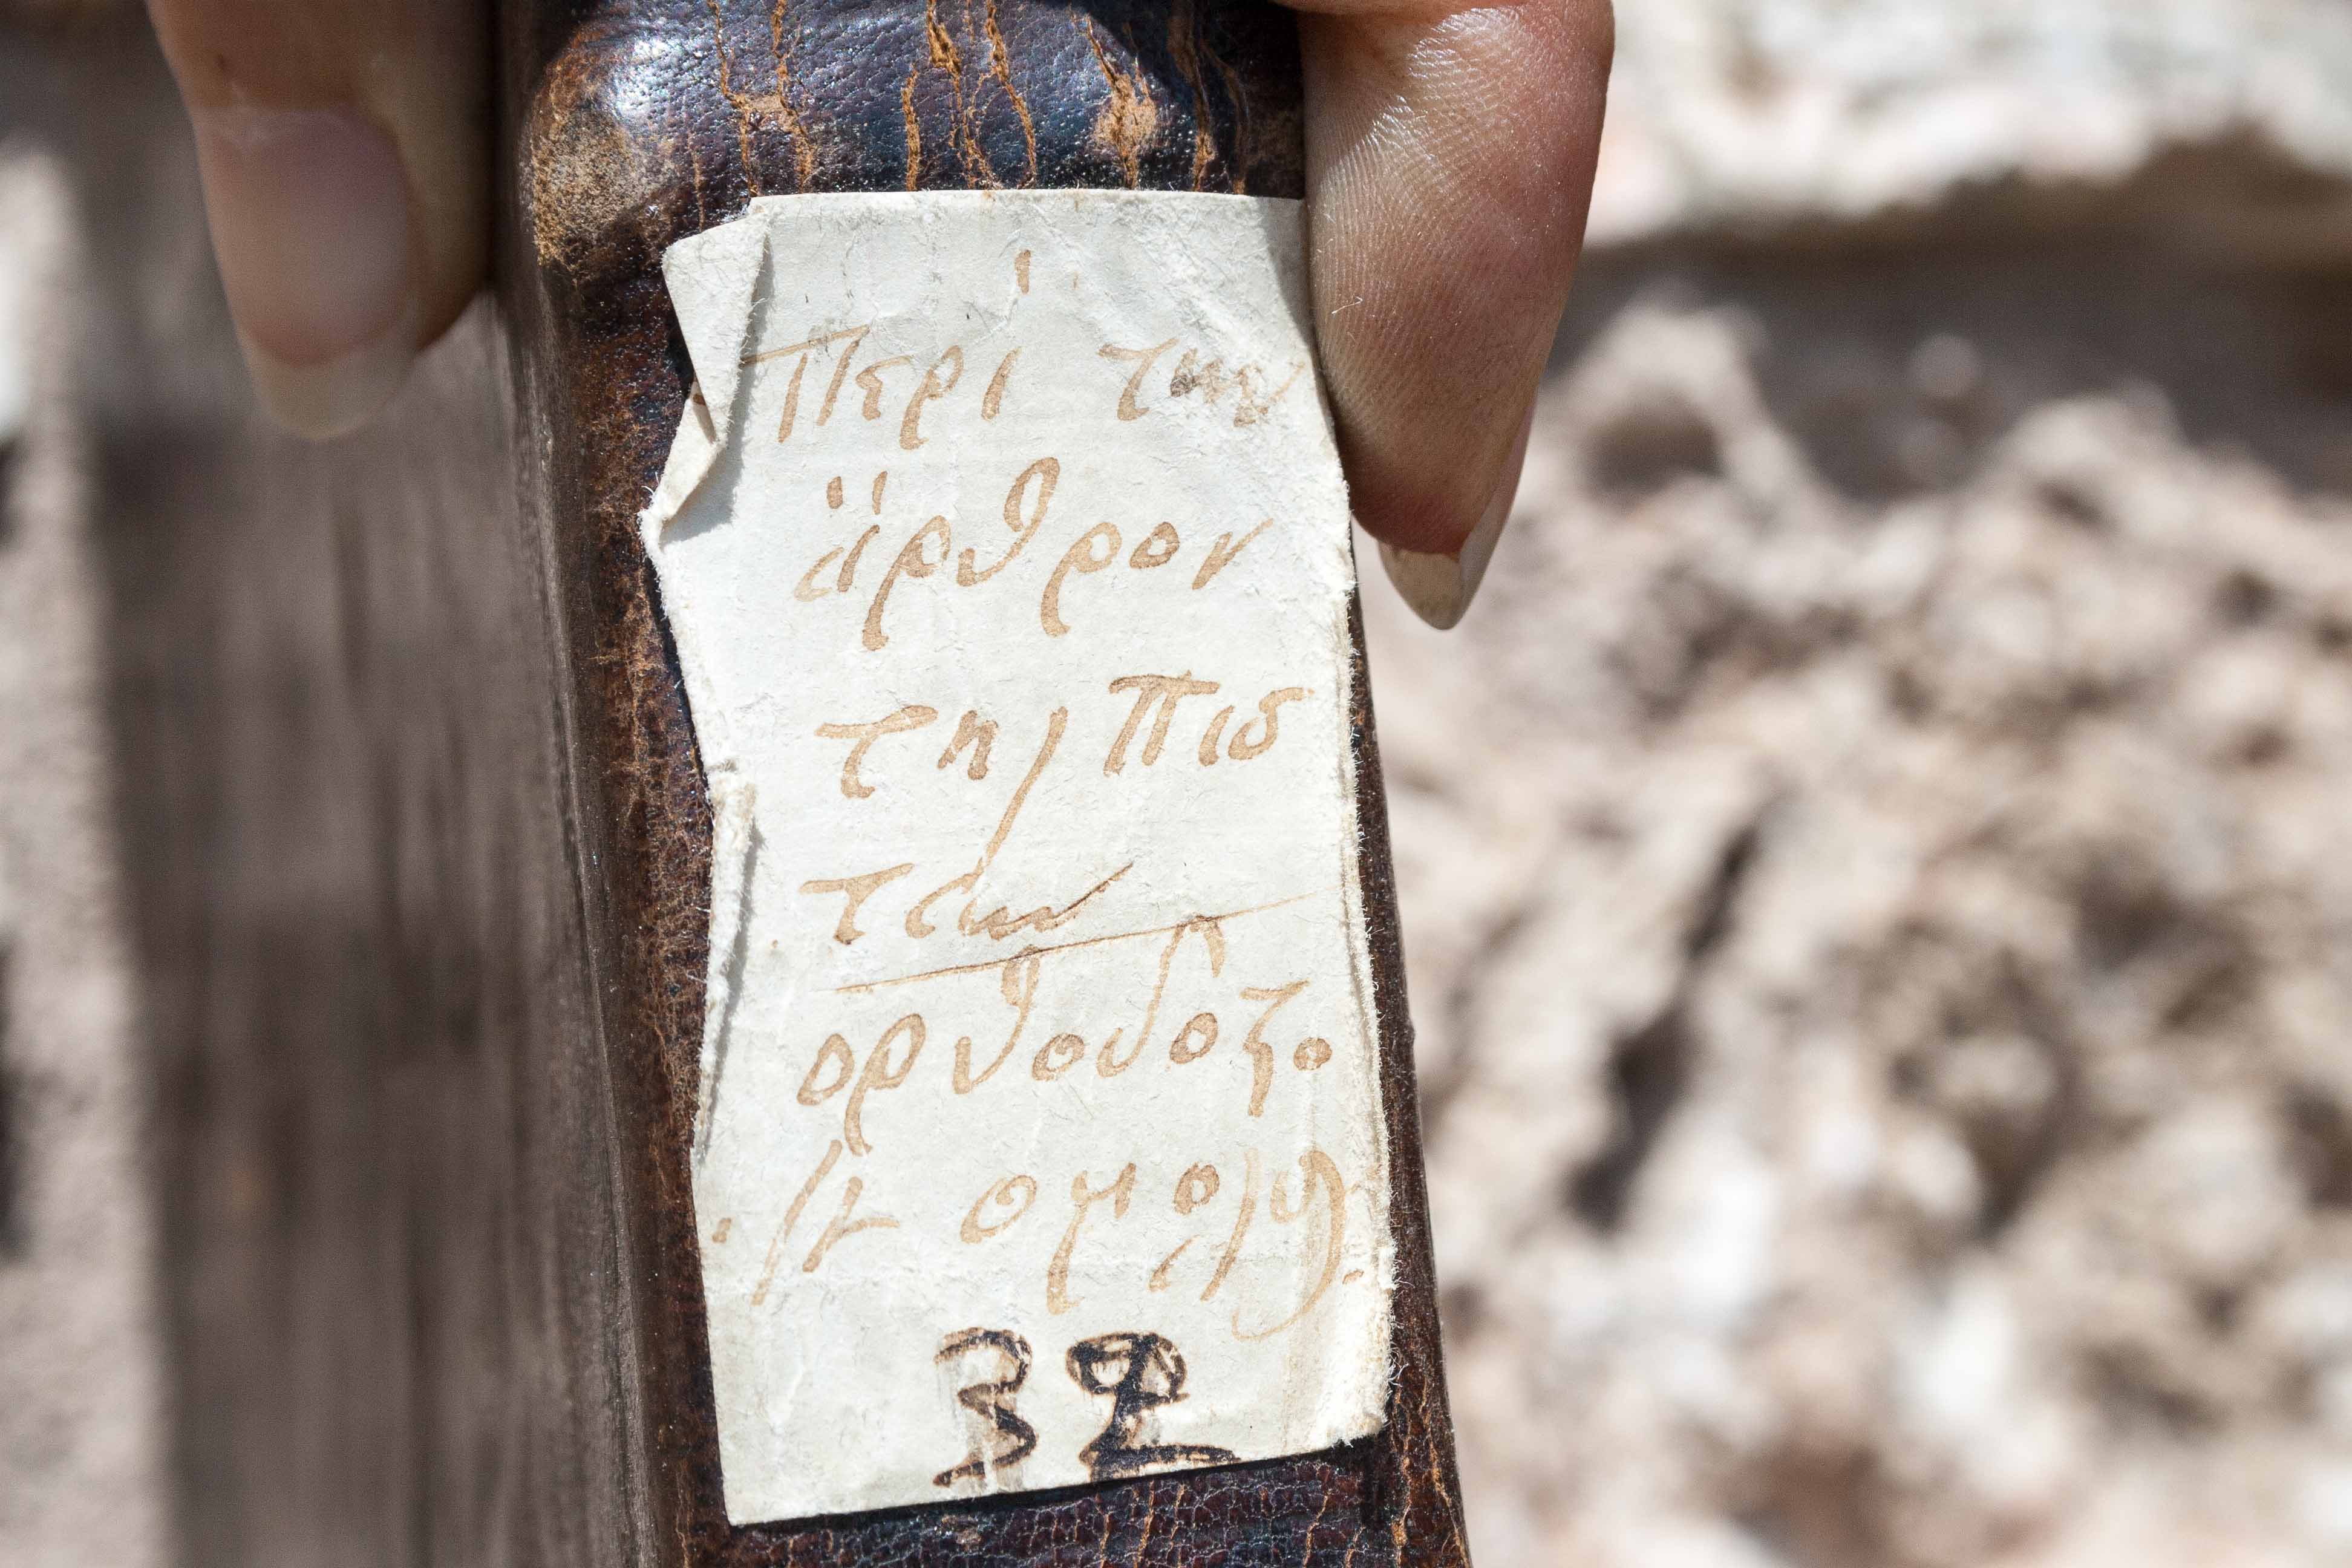 Περί των
άρθρον
της Πισ
τεων
ορθοδοξο
ομολογ.
32